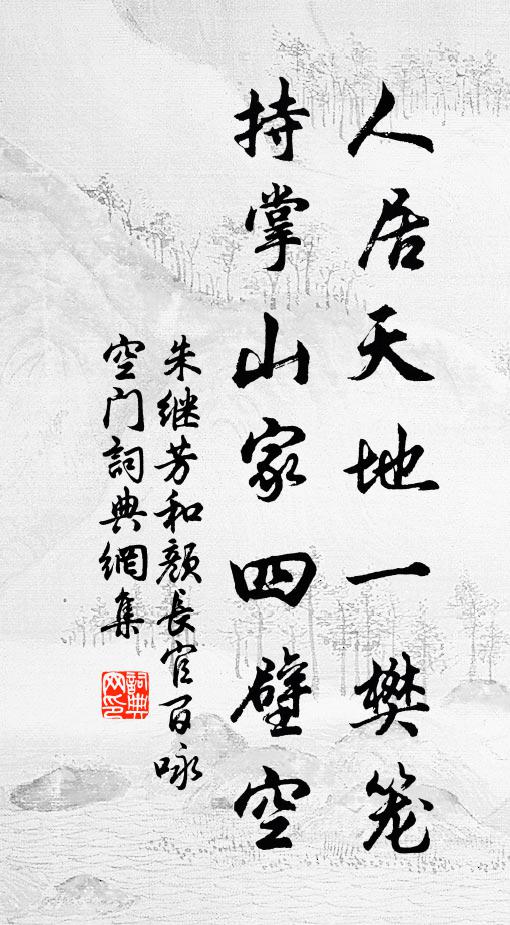 人居天地一樊笼
持掌山家四壁空
朱继芳和颜长官百咏
空门詞典網集
詞典
网印